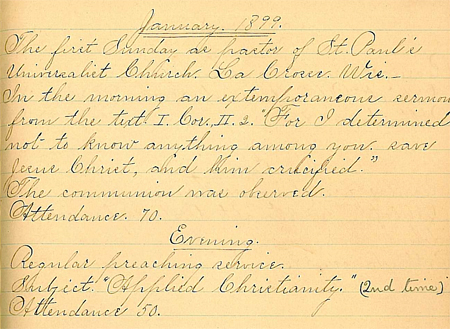 January. 1899.
The first Sunday as pastor of St. Paul's
Universalist Church. La Crosse. Wis.—
In the morning an extemporaneous sermon
from the text I. Cor. II. 2. "For I determined
not to know anything among you. save
Jesus Christ, and him crucified."
The communion was observed.
Attendance. 70.
Evening.
Regular preaching service.
Subject. "Applied Christianity." (2nd time)
Attendance 50.